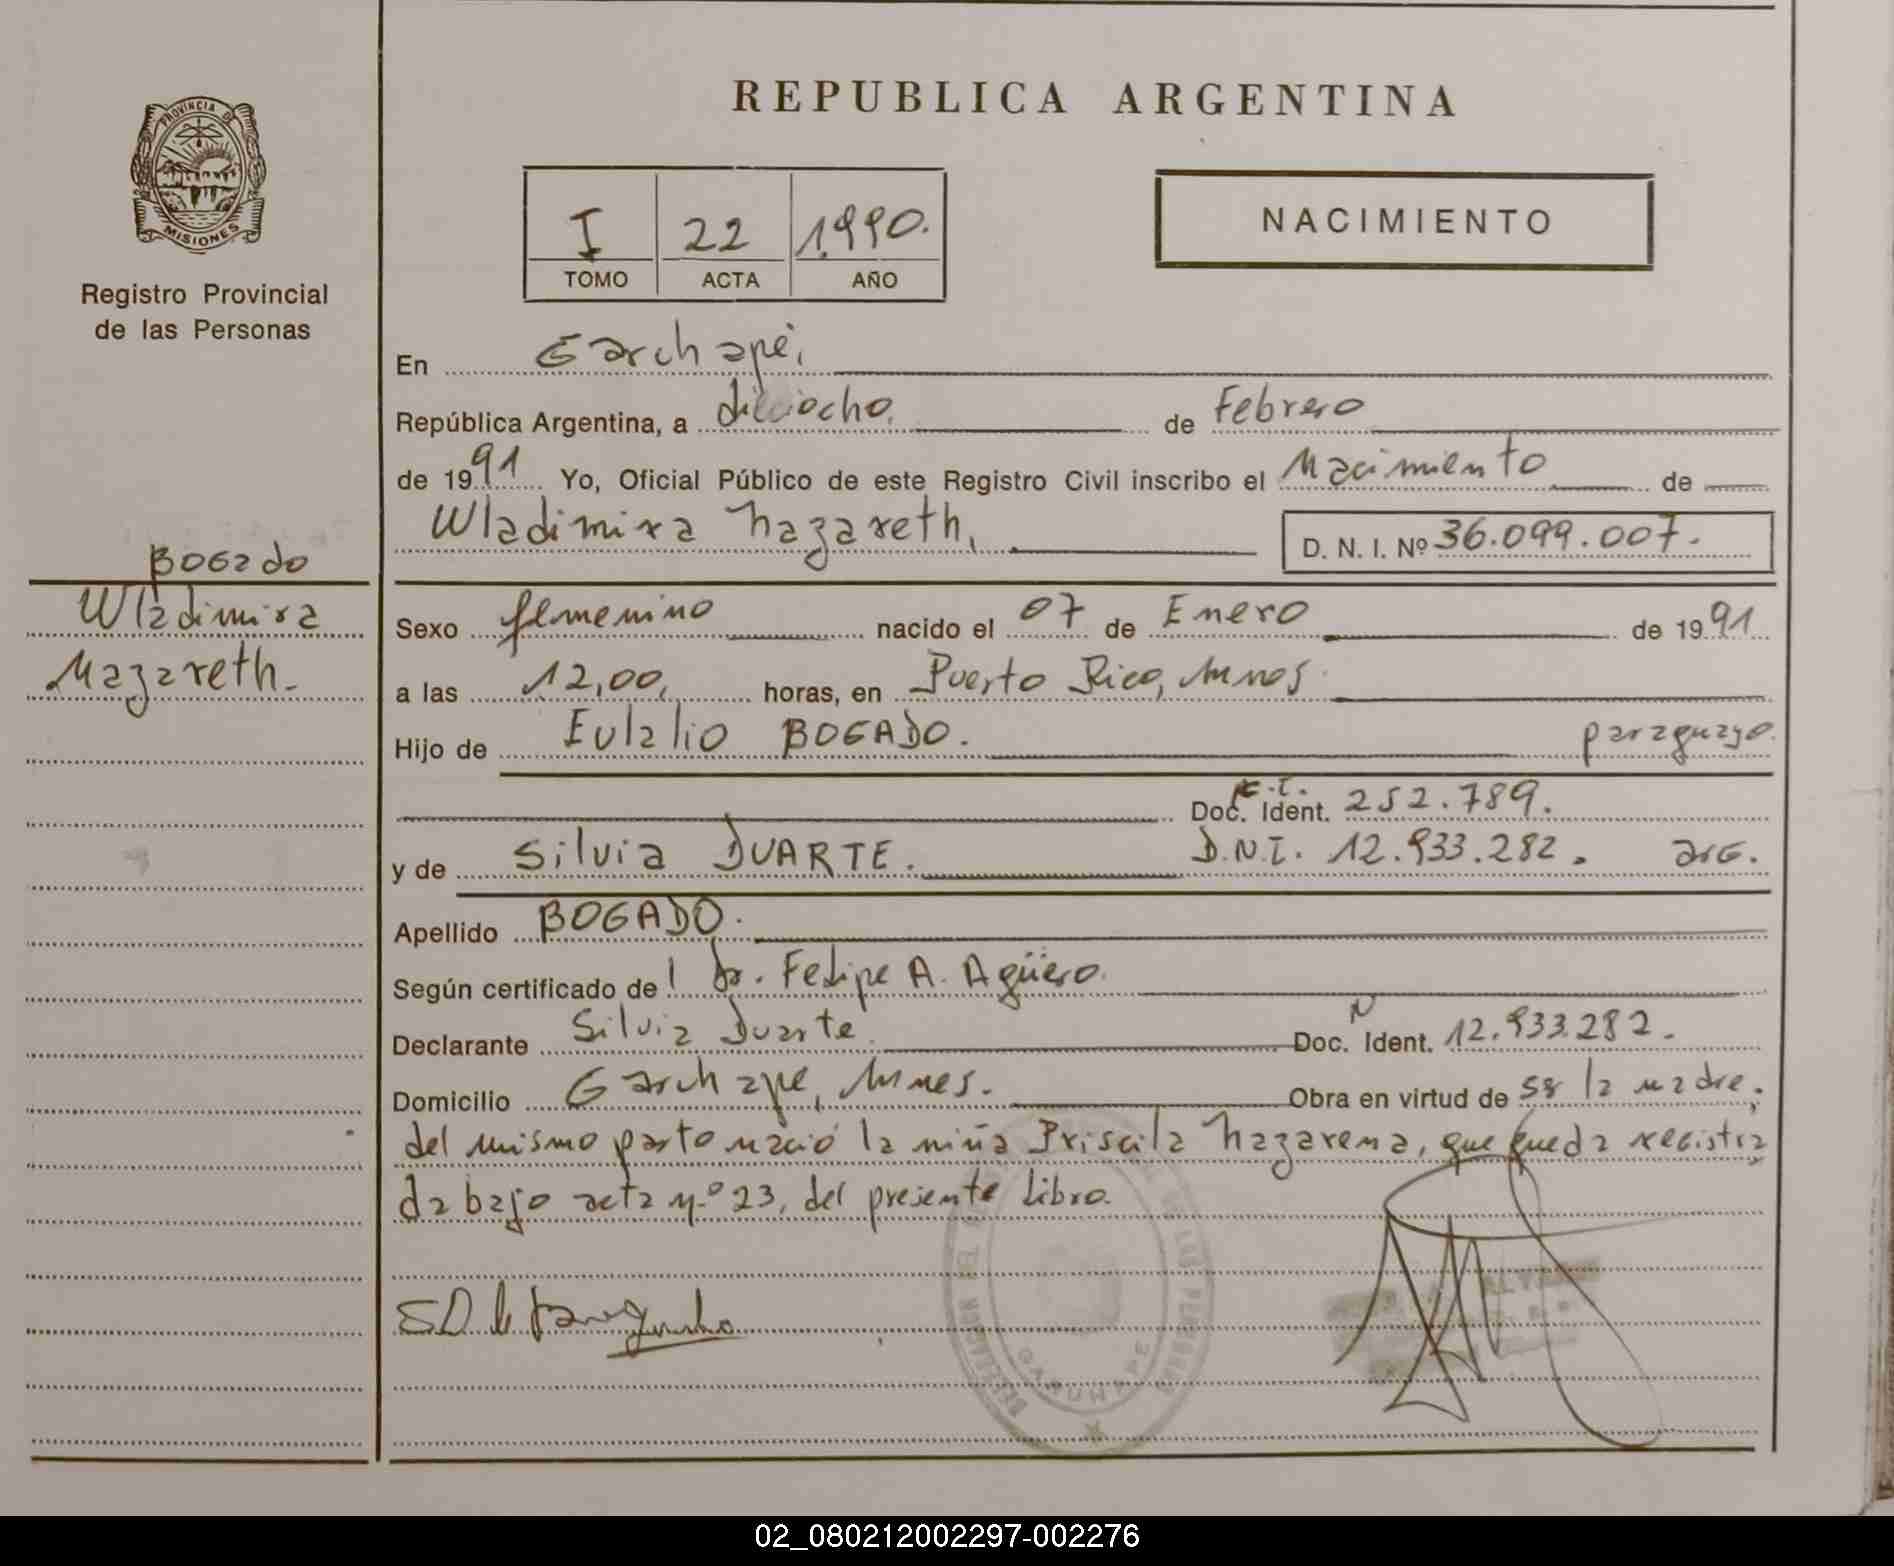 REPUBLICA ARGENTINA
PROVINCIA DE
MISIONES
Registro Provincial
de las Personas
I 22 1.990.
TOMO ACTA AÑO
NACIMIENTO
En Garuhapé,
República Argentina, a dieciocho. de Febrero
de 1991 Yo, Oficial Público de este Registro Civil inscribo el Nacimiento de
Wladimira Nazareth, D. N. I. Nº 36.099.007.
BOGado
Wladimira
Nazareth.
Sexo femenino nacido el 07 de Enero de 1991
a las 12,00, horas, en Puerto Rico, Mnes.
Hijo de Eulalio BOGADO. paraguayo.
Doc. Ident. C.I. 252.789.
y de Silvia DUARTE. D.N.I. 12.933.282. arG.
Apellido BOGADO.
Según certificado de l Dr. Felipe A. Agüero.
Declarante Silvia Duarte. Doc. Ident. N 12.933.282.
Domicilio Garuhapé, Mnes. Obra en virtud de ser la madre;
del mismo parto nació la niña Priscila Nazarena, que queda registra
da bajo acta n.º 23, del presente Libro.
DELEGACION DEL
DE LAS PERSONAS
GARUHAPE
02_080212002297-002276